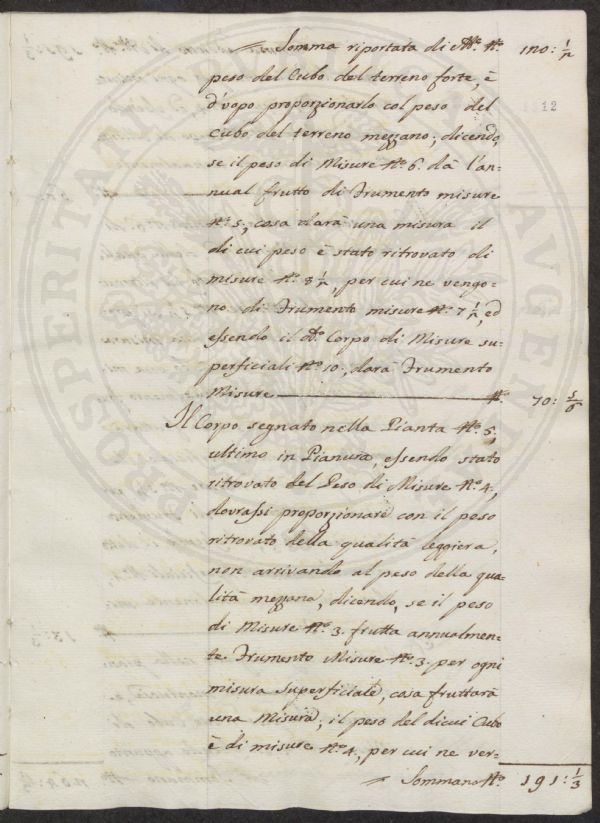 Somma riportata di Mre. No. 120: 1/2
peso del Cubo del terreno forte, è
d'vopo proporzionarlo col peso del
12
Cubo del terreno mezzano, dicendo,
se il peso di Misure No. 6. dà l'an=
nual frutto di Frumento misure
No. 5, cosa darà una misura il
di cui peso è stato ritrovato di
misure No. 8 1/2, per cui ne vengo=
no di Frumento misure No. 7 1/2, ed
essendo il do. Corpo di Misure su=
perficiali No. 10., darà Frumento
Misure No. 70: 5/6
Il Corpo segnato nella Pianta No. 5,
ultimo in Pianura, essendo stato
ritrovato del Peso di Misure No. 4,
dovrassi proporzionare con il peso
ritrovato della qualità leggiera,
non arrivando al peso della qua=
lità mezzana, dicendo, se il peso
di Misure No. 3. frutta annualmen=
te Frumento Misure No. 3. per ogni
misura superficiale, cosa fruttarà
una Misura, il peso del dicui Cubo
è di misure No. 4, per cui ne ver=
Sommano No. 191: 1/3
PROSPERITATI PUBLICAE AVGENDAE